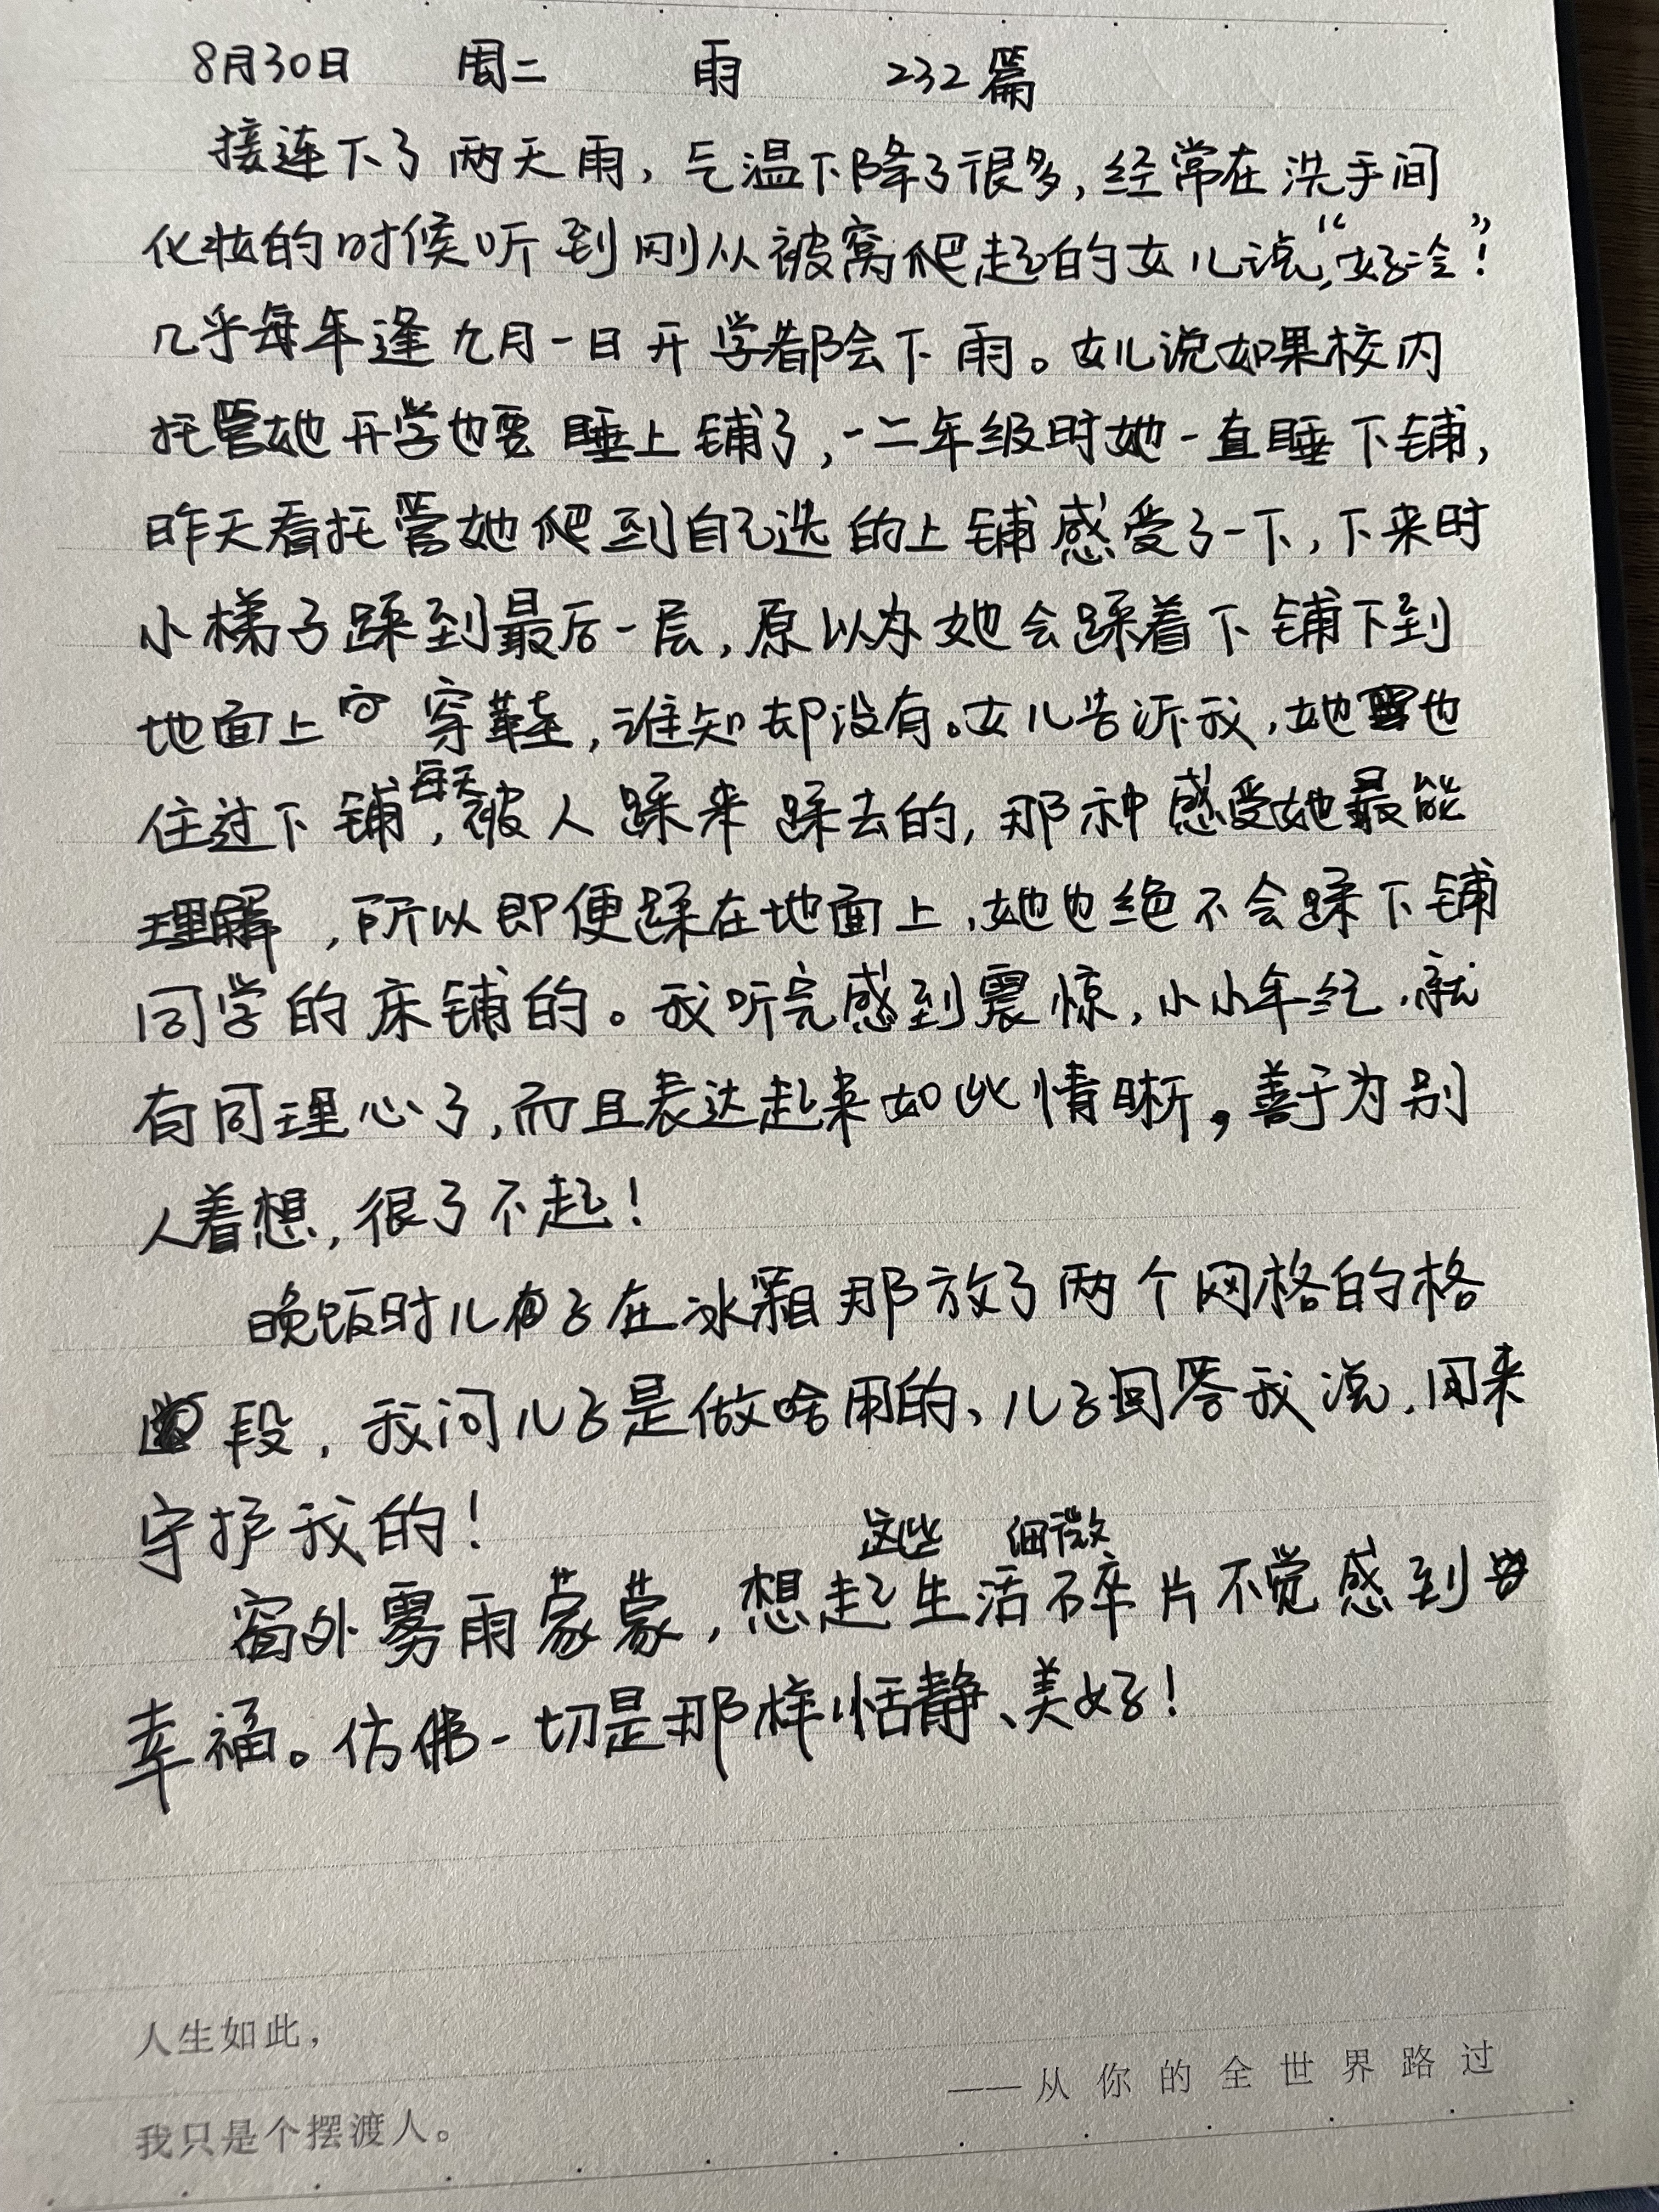 8月30日 周二 雨 232篇
接连下了两天雨，气温下降了很多，经常在洗手间
化妆的时候听到刚从被窝爬起的女儿说，“好冷”！
几乎每年逢九月一日开学都会下雨。女儿说如果校内
托管她开学也要睡上铺了，一二年级时她一直睡下铺，
昨天看托管她爬到自己选的上铺感受了一下，下来时
小梯子踩到最后一层，原以为她会踩着下铺下到
地面上穿鞋，谁知却没有。女儿告诉我，她也
住过下铺，每天被人踩来踩去的，那种感受她最能
理解，所以即便踩在地面上，她也绝不会踩下铺
同学的床铺的。我听完感到震惊，小小年纪，就
有同理心了，而且表达起来如此情晰，善于为别
人着想，很了不起！
晚饭时儿子在冰箱那放了两个网格的格
段，我问儿子是做啥用的、儿子回答我说，用来
守护我的！
窗外雾雨蒙蒙，想起这些生活细微碎片不觉感到
幸福。仿佛一切是那样恬静、美好！
人生如此，
我只是个摆渡人。
——从你的全世界路过